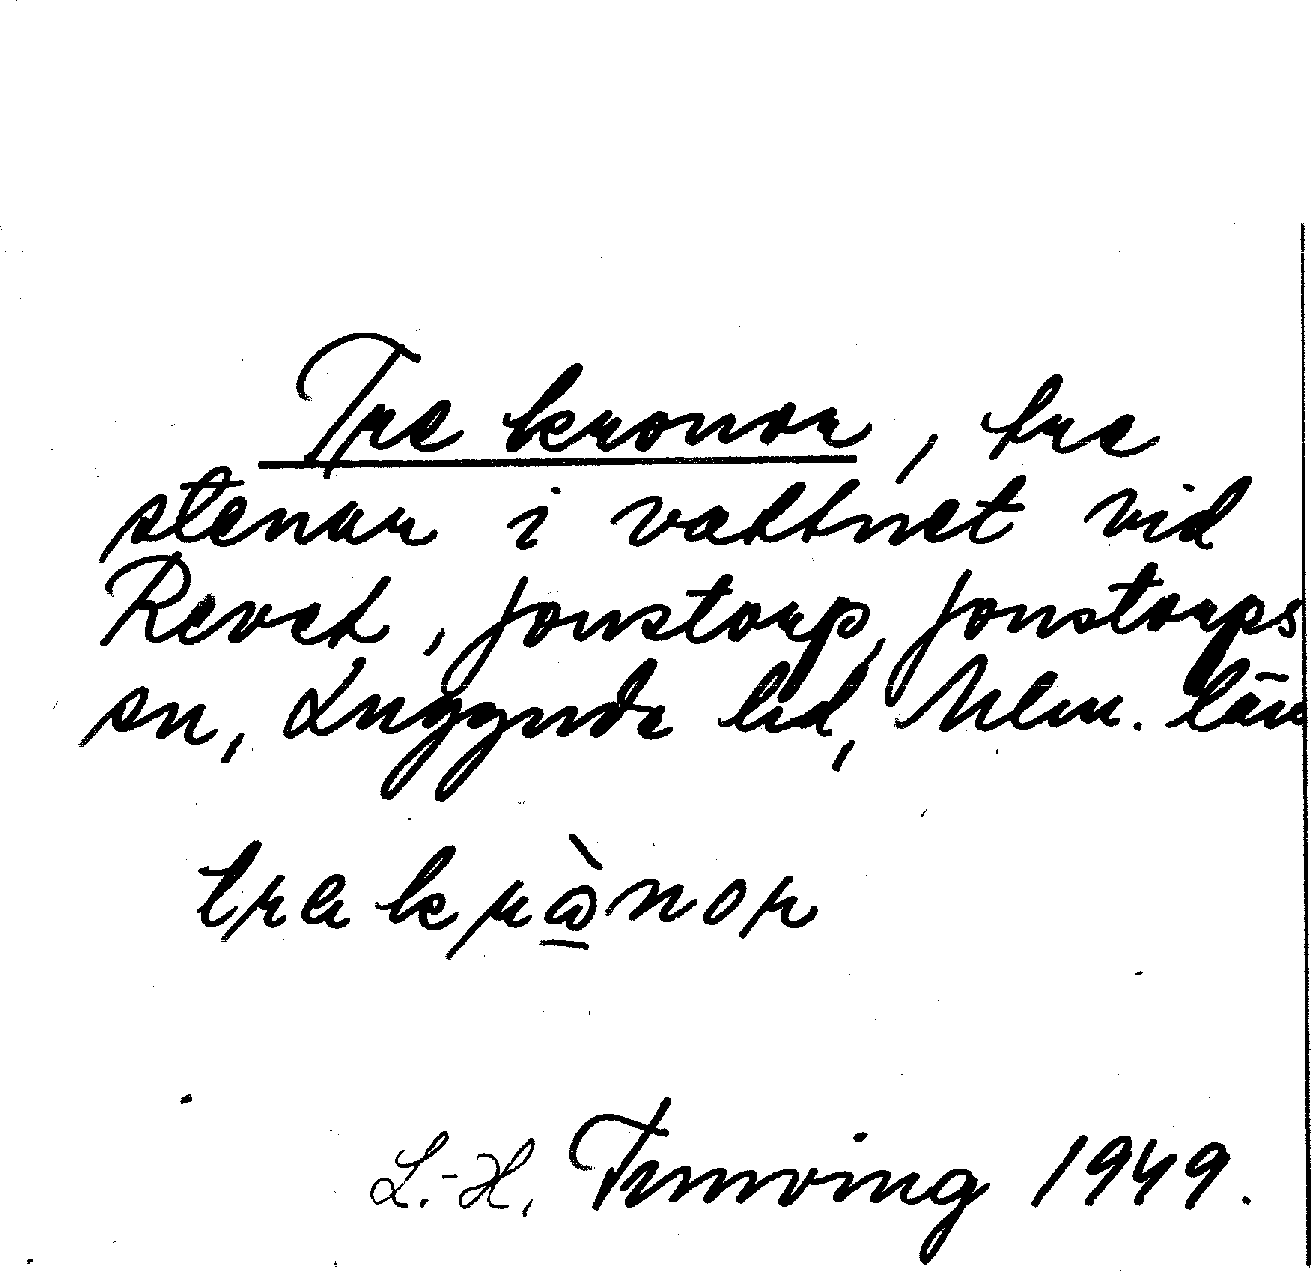 Tre kronor, tre
stenar i vattnet vid
Revet, Jonstorp, Jonstorps
sn, Luggude hd, Mlm. län
tre krånor
L.-H. 1949.